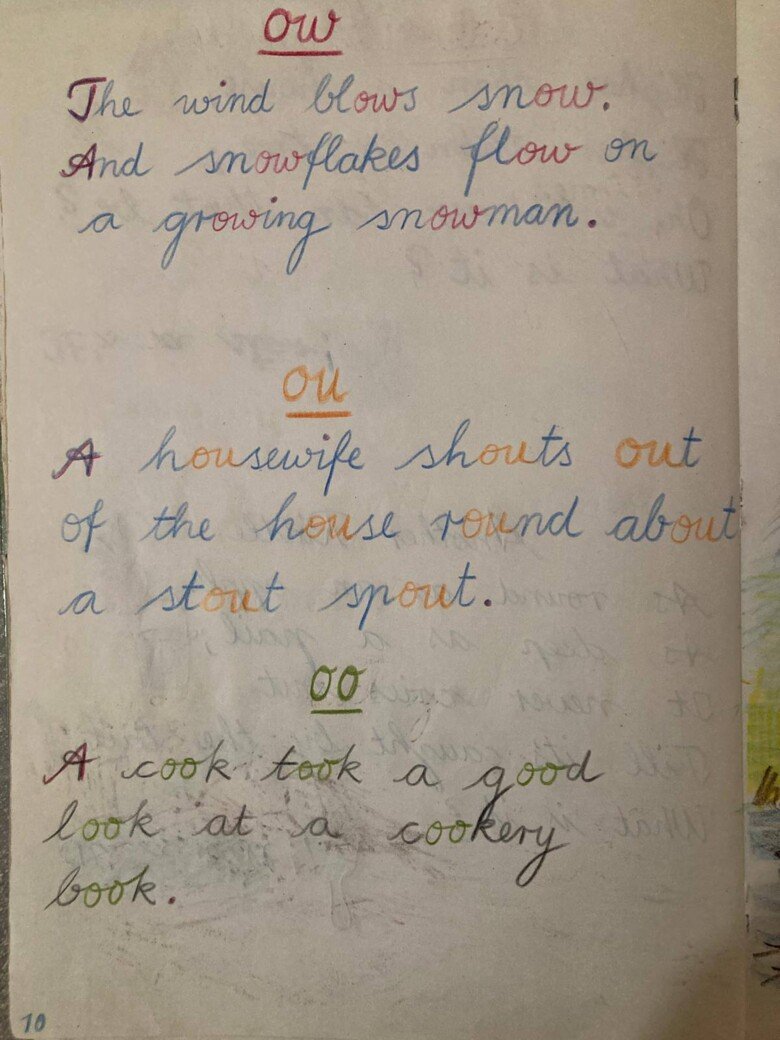 ow
The wind blows snow.
And snowflakes flow on
a growing snowman.
ou
A housewife shouts out
of the house round about
a stout spout.
oo
A cook took a good
look at a cookery
book.
10